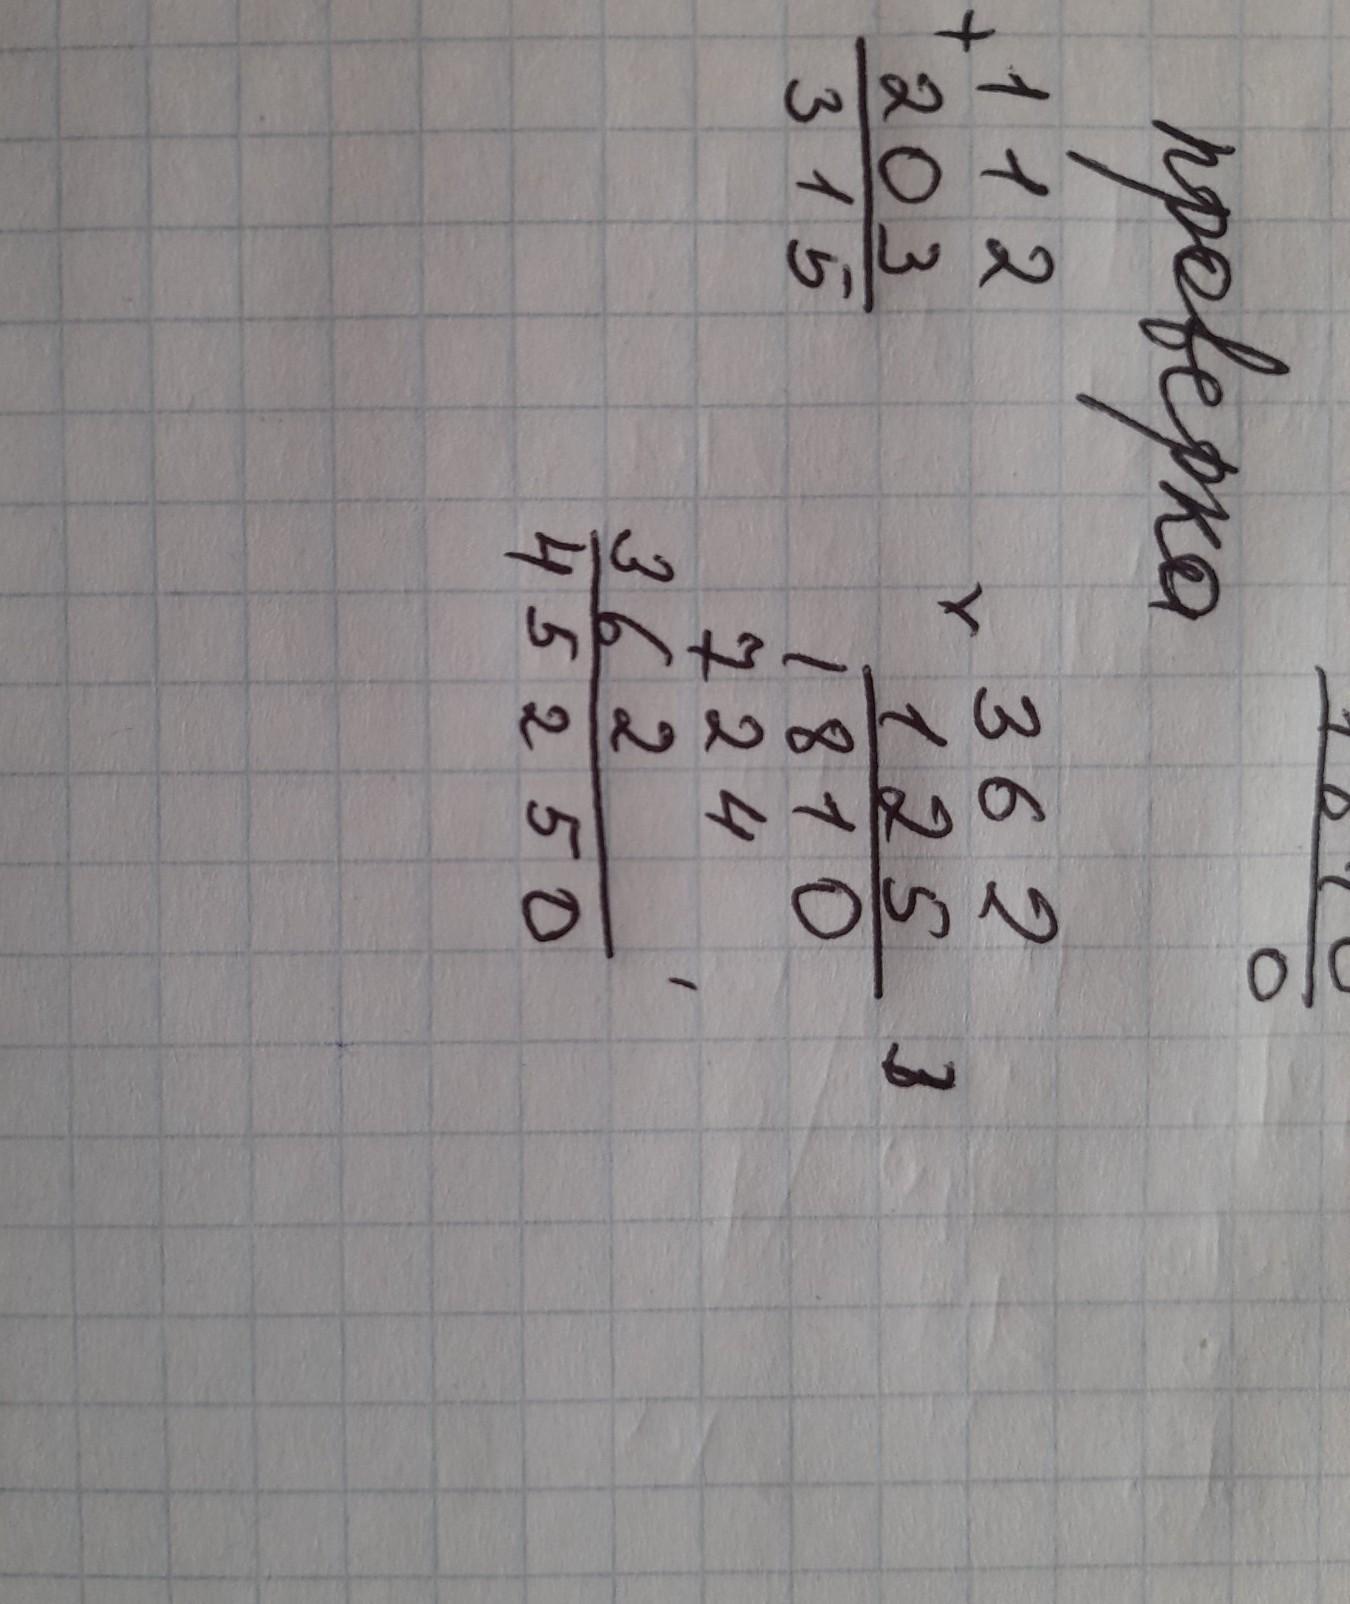 1810
0
проверка
+ 112
203
315
× 362
125
1810
724
362
45250
3